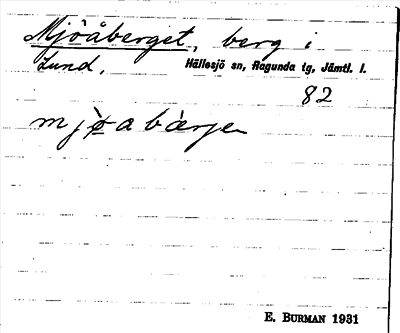 Mjöåberget, berg i
Lund. Hällesjö sn, Ragunda tg, Jämtl. l.
82
mjø̀abærjen
E. BURMAN 1931